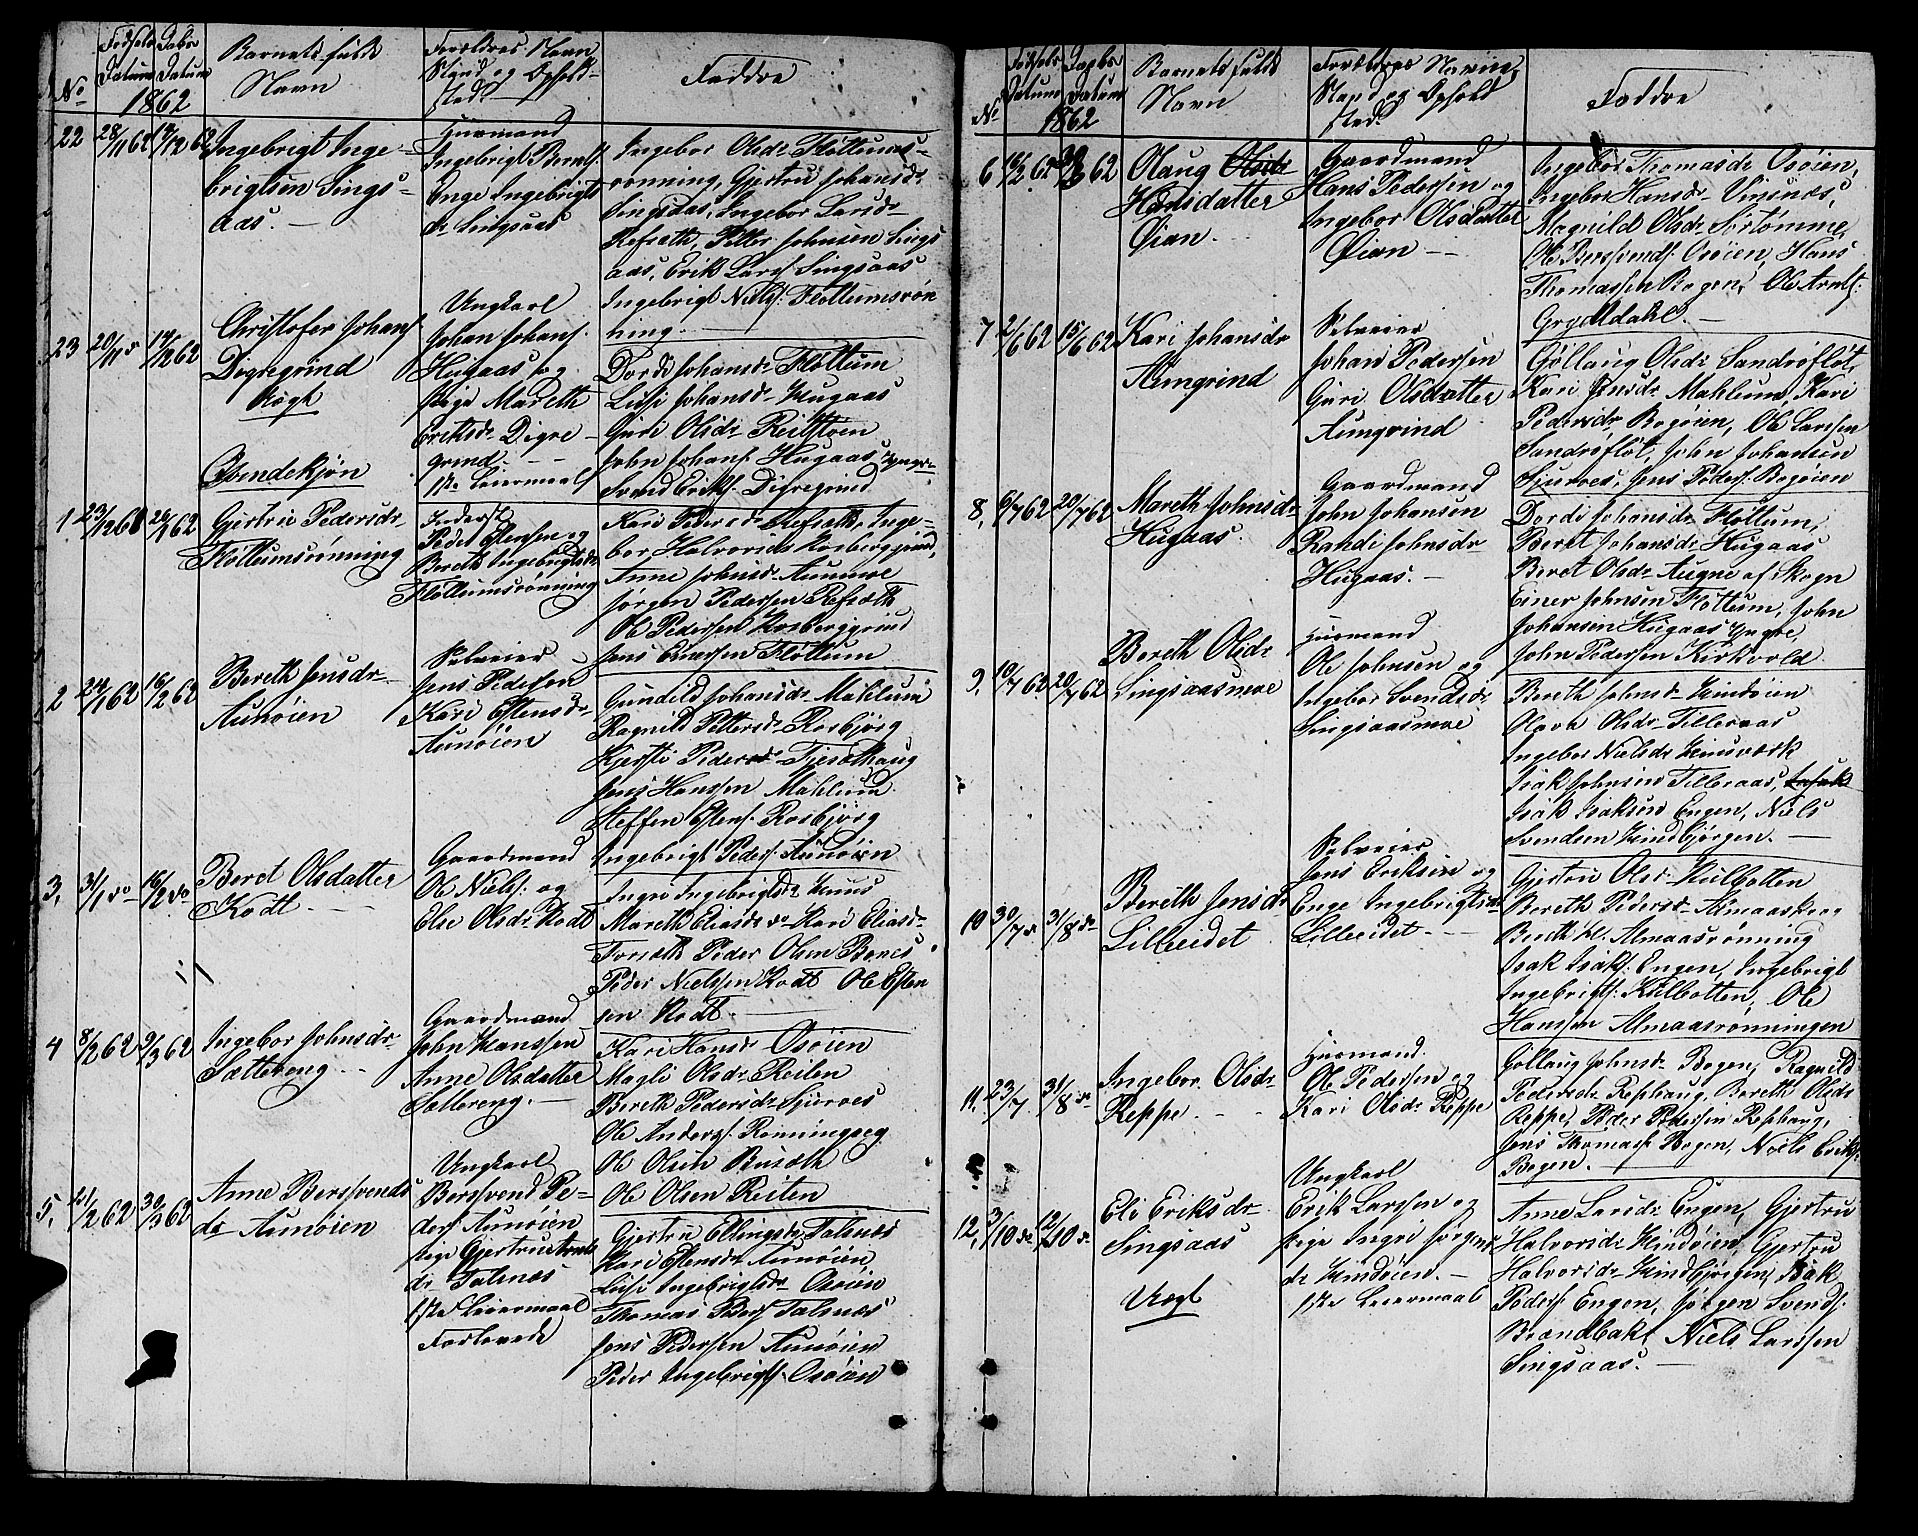 No
Fødsels
Datum
Daabs
Datum
1862
Barnets fulde
Navn
Forældres Navn
Stand og Opholds-
sted.
Faddre
22 28/11 62 14/12 62
Ingebrigt Inge-
brigtsen Sings-
aas.
Huusmand
Ingebrigt Bernts.
Enge Ingebrigts
dr Singsaas
Ingebor Olsdr Fløttums-
rønning, Gjertru Johansdr
Singsaas, Ingebor Larsdr
Refseth, Petter Johnsen Sings
aas, Erik Lars. Singsaas
Ingebrigt Niels. Fløttumsrøn
ning.
23 20/11 do 14/12 62
Christofer Johans.
Digregrind
Uægte
Ungkarl
Johan Johans.
Hugaas og
pige Mareth
Eriksdr Digre-
grind
1ste Leiermaal
Dordi Johansdr Fløttum
Lisi Johansdr Hugaas
Guri Olsdr Reitstøen
John Johans. Hugaas Yngre
Svend Eriks. Digregrind
Qvindekjøn
1 23/12 61 26/1 62
Gjertru Pedersdr
Fløttumsrønning
Inderst
Peder Estensen og
Bereth Ingebrigtsdr
Fløttumsrønning
Kari Pedersdr Refseth, Inge-
bor Halvorsdr Kosberggrind,
Anne Johnsdr Aunmoe
Jørgen Pedersen Refseth
Ole Pedersen Kosberggrind
Jens Einersen Fløttum
2 24/1 62 16/2 62
Bereth Jensdr
Aunøien
Selveier
Jens Pedersen
Kari Estensdr
Aunøien
Gunild Johansdr Mahlum
Ragnild Pettersdr Rosbjørg
Kjersti Pedersdr
Jens Hanssen Mahlum
Steffen Estens. Rosbjørg
Ingebrigt Peders. Aunøien
3, 31/1 do 16/2 do
Beret Olsdatter
Kodt
Gaardmand
Ole Niels. og
Else Olsdr Kodt
Ingri Ingebrigtsdr Huus
Mareth Eliasdr do Kari Eliasdr
Forseth Peder Olsen Bones
Peder Nielssen Kodt Ole Esten
sen Kodt.
4 8/2 62 9/3 62
Ingebor Johnsdr
Sætereng
Gaardmand
John Hanssen
Anne Olsdatter
Sætereng.
Kari Hansdr Osøien
Magli Olsdr Reiten
Bereth Pedersdr Sjurves
Ole Anders. Rønningseg
Ole Olsen Buseth
Ole Olsen Reiten
5, 21/2 62 30/3 62
Anne Bersvends
dr Aunøien
Ungkarl
Bersvend Pe-
ders. Aunøien
pige Gjertru Arnts
dr Talsnæs
1ste Leiermaal
Forlovede
Gjertru Ellingsdr Talsnæs
Kari Estensdr Aunøien
Lisi Ingebrigtsdr Osøien
Thomas Peders. Talsnæs
Jens Pedersen Aunøien
Peder Ingebrigts. Osøien
No
Fødsels
Datum
Daabs
Datum
1862
Barnets fulde
Navn
Forældres Navn,
Stand og Ophold
sted.
Faddre
6 16/2 62 62
Olaug Olsdr
Hansdatter
Øian.
Gaardmand
Hans Pedersen og
Ingebor Olsdatter
Øian
Ingebor Thomasdr Osøien,
Ingebor Hansdr Vinsnæs,
Magnild Olsdr Sørtømme,
Ole Bersvends. Osøien, Hans
Thomassen Bogen, Ole Arnts.
Gryttdahl.
7 2/6 62 15/6 62
Kari Johansdr
Aungrind
Selveier
Johan Pedersen
Guri Olsdatter
Aungrind
Gøllaug Olsdr Sandrøflöt,
Kari Jensdr Mahlum, Kari
Pedersdr Bogøien, Ole Larsen
Sandrøflot, John Johansen
Sjurves, Jens Peders. Bogøien
8, 6/7 62 20/7 62
Mareth Johnsdr
Hugaas.
Gaardmand
John Johansen
Randi Johnsdr
Hugaas.
Dordi Johansdr Fløttum,
Beret Johansdr Hugaas
Beret Olsdr Augne af Skogn
Einer Johnsen Fløttum, John
Johansen Hugaas Yngre,
John Pedersen Kirkvold
9, 10/7 62 20/7 62
Bereth Olsdr
Singsaasmoe
Huusmand
Ole Johnsen og
Ingebor Svendsdr
Singsaasmoe
Bereth Johnsdr Kindøien
Olava Olsdr Tilleraas
Ingebor Nielsdr
Isak Johnsen Tilleraas,
Isak Isaksen Engen, Niels
Svendsen Kindbjørgen.
10 30/7 do 31/8 do
Bereth Jensdr
Lilleeidet
Selveier
Jens Eriksen og
Enge Ingebrigtsdr
Lilleeidet
Gjertru Olsdr Kulbotten
Bereth Pedersdr Almaaskrog
Bereth Almaasrønning
Isak Isaks. Engen, Ingebrigt
Ingebrigts. Kulbotten, Ole
Hanssen Almaasrønningen
11, 23/7 31/8 do
Ingebor Olsdr
Reppe
Huusmand.
Ole Pedersen og
Kari Olsdr Reppe
Gollaug Johnsdr Bogen, Ragnild
Pedersdr Rephaug, Bereth Olsdr
Reppe, Peder Pedersen Rephaug,
Jens Thomas. Bogen, Niels Eriks.
Bogen.
12, 3/10 do 12/10 do
Eli Eriksdr
Singsaas
Uægt
Ungkarl
Erik Larssen og
pige Ingri Jørgens
dr Kindøien.
1ste Leiermaal
Anne Larsdr Engen, Gjertru
Halvorsdr Kindøien, Gjertru
Halvorsdr Kindbjørgen, Isak
Peders. Engen, Jørgen Svends.
Brændbak, Niels Larssen
Singsaas.